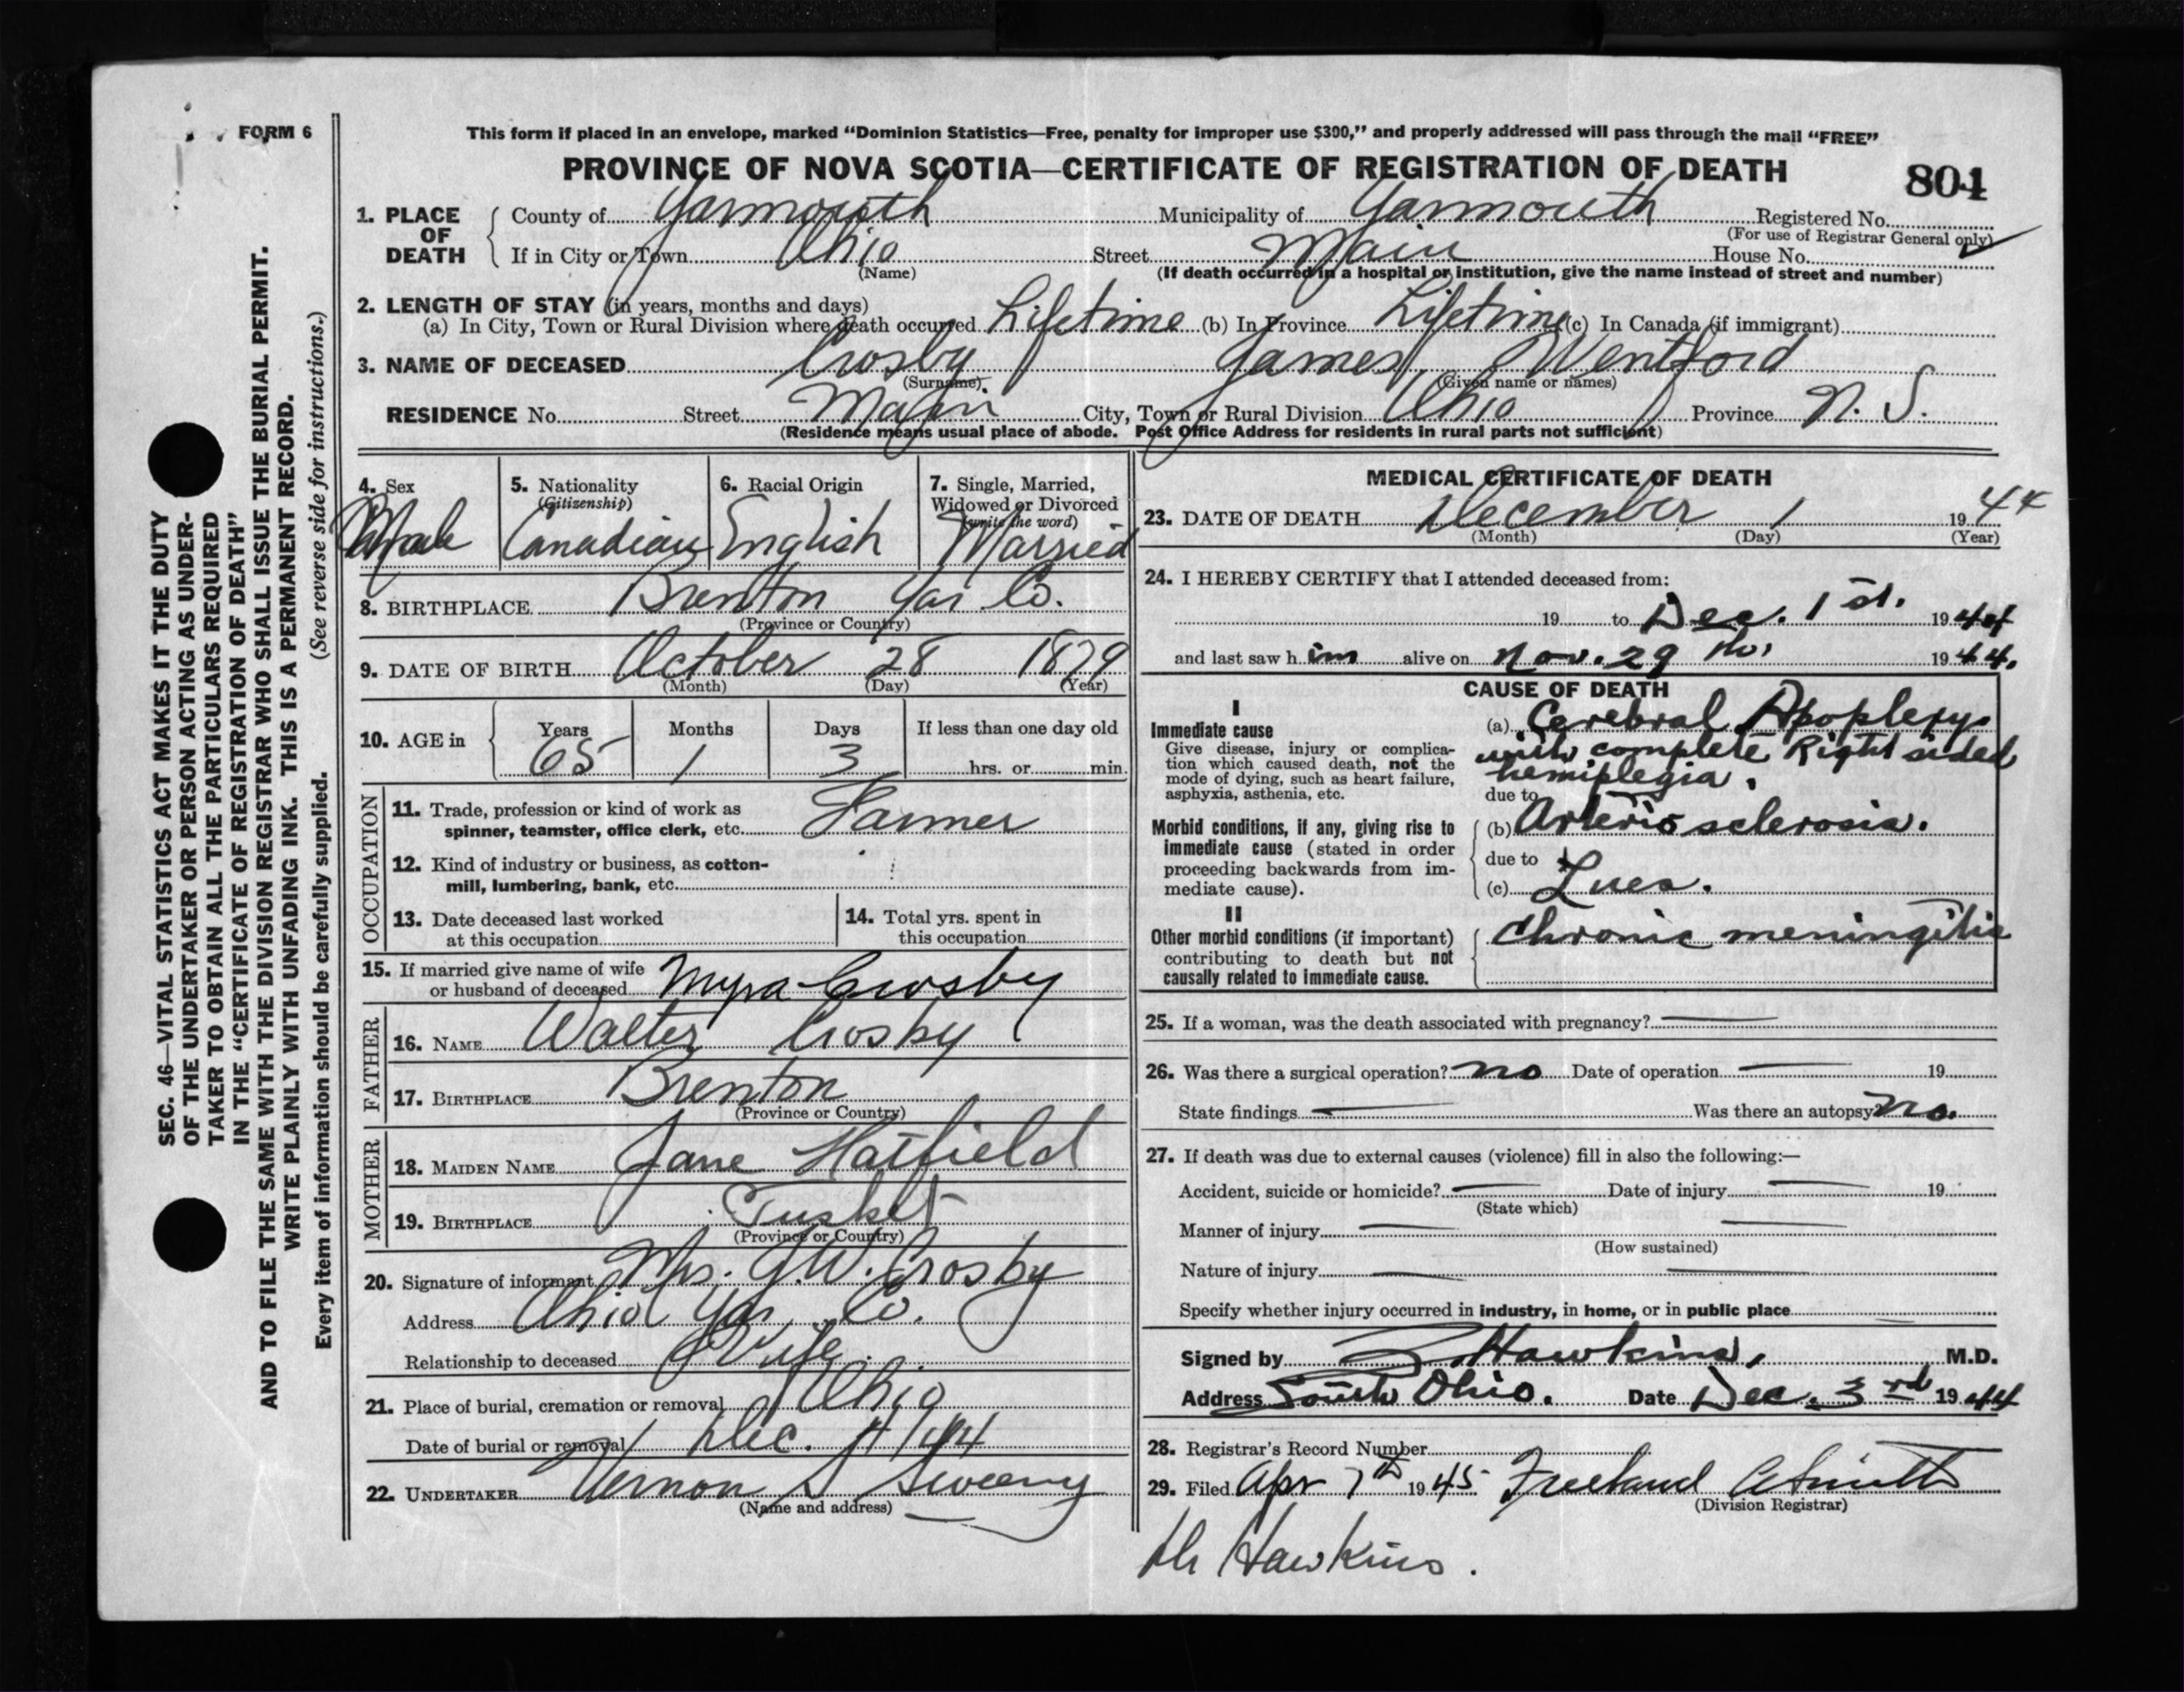 FORM 6
This form if placed in an envelope, marked “Dominion Statistics—Free, penalty for improper use $300,” and properly addressed will pass through the mail “FREE”
PROVINCE OF NOVA SCOTIA—CERTIFICATE OF REGISTRATION OF DEATH
804
1. PLACE OF DEATH
County of Yarmouth Municipality of Yarmouth Registered No.
(For use of Registrar General only)
If in City or Town Ohio Street Main House No.
(Name) (If death occurred in a hospital or institution, give the name instead of street and number)
2. LENGTH OF STAY (in years, months and days)
(a) In City, Town or Rural Division where death occurred Lifetime (b) In Province Lifetime (c) In Canada (if immigrant)
3. NAME OF DECEASED Crosby James Wentford
(Surname) (Given name or names)
RESIDENCE No. Street Main City, Town or Rural Division Ohio Province N. S.
(Residence means usual place of abode. Post Office Address for residents in rural parts not sufficient)
SEC. 46—VITAL STATISTICS ACT MAKES IT THE DUTY
OF THE UNDERTAKER OR PERSON ACTING AS UNDER-
TAKER TO OBTAIN ALL THE PARTICULARS REQUIRED
IN THE “CERTIFICATE OF REGISTRATION OF DEATH”
AND TO FILE THE SAME WITH THE DIVISION REGISTRAR WHO SHALL ISSUE THE BURIAL PERMIT.
WRITE PLAINLY WITH UNFADING INK. THIS IS A PERMANENT RECORD.
Every item of information should be carefully supplied. (See reverse side for instructions.)
4. Sex
Male
5. Nationality
(Citizenship)
Canadian
6. Racial Origin
English
7. Single, Married,
Widowed or Divorced
(write the word)
Married
8. BIRTHPLACE Brenton Yar Co.
(Province or Country)
9. DATE OF BIRTH October 28 1879
(Month) (Day) (Year)
10. AGE in
Years Months Days If less than one day old
65 1 3 hrs. or min.
OCCUPATION
11. Trade, profession or kind of work as
spinner, teamster, office clerk, etc. Farmer
12. Kind of industry or business, as cotton-
mill, lumbering, bank, etc.
13. Date deceased last worked
at this occupation
14. Total yrs. spent in
this occupation
15. If married give name of wife
or husband of deceased Myra Crosby
FATHER
16. NAME Walter Crosby
17. BIRTHPLACE Brenton
(Province or Country)
MOTHER
18. MAIDEN NAME Jane Hatfield
19. BIRTHPLACE Tusket
(Province or Country)
20. Signature of informant Mrs. J.W. Crosby
Address Ohio Yar Co.
Relationship to deceased Wife
21. Place of burial, cremation or removal Ohio
Date of burial or removal Dec. 4/44
22. UNDERTAKER Vernon S Sweeny
(Name and address)
MEDICAL CERTIFICATE OF DEATH
23. DATE OF DEATH December 1 1944
(Month) (Day) (Year)
24. I HEREBY CERTIFY that I attended deceased from:
19 to Dec. 1st. 1944
and last saw him alive on Nov. 29 th. 1944.
CAUSE OF DEATH
I
Immediate cause
Give disease, injury or complica-
tion which caused death, not the
mode of dying, such as heart failure,
asphyxia, asthenia, etc.
(a) Cerebral Apoplexy
with complete Right sided
hemiplegia.
due to
Morbid conditions, if any, giving rise to
immediate cause (stated in order
proceeding backwards from im-
mediate cause).
(b) Arterio sclerosis.
due to
(c) Lues.
II
Other morbid conditions (if important)
contributing to death but not
causally related to immediate cause.
Chronic meningitis
25. If a woman, was the death associated with pregnancy?
26. Was there a surgical operation? no Date of operation 19
State findings Was there an autopsy? no.
27. If death was due to external causes (violence) fill in also the following:—
Accident, suicide or homicide? Date of injury 19
(State which)
Manner of injury
(How sustained)
Nature of injury
Specify whether injury occurred in industry, in home, or in public place
Signed by Hawkins, M.D.
Address South Ohio. Date Dec. 3rd 1944
28. Registrar's Record Number
29. Filed Apr 7th 1945 Freeland
(Division Registrar)
Dr Hawkins.